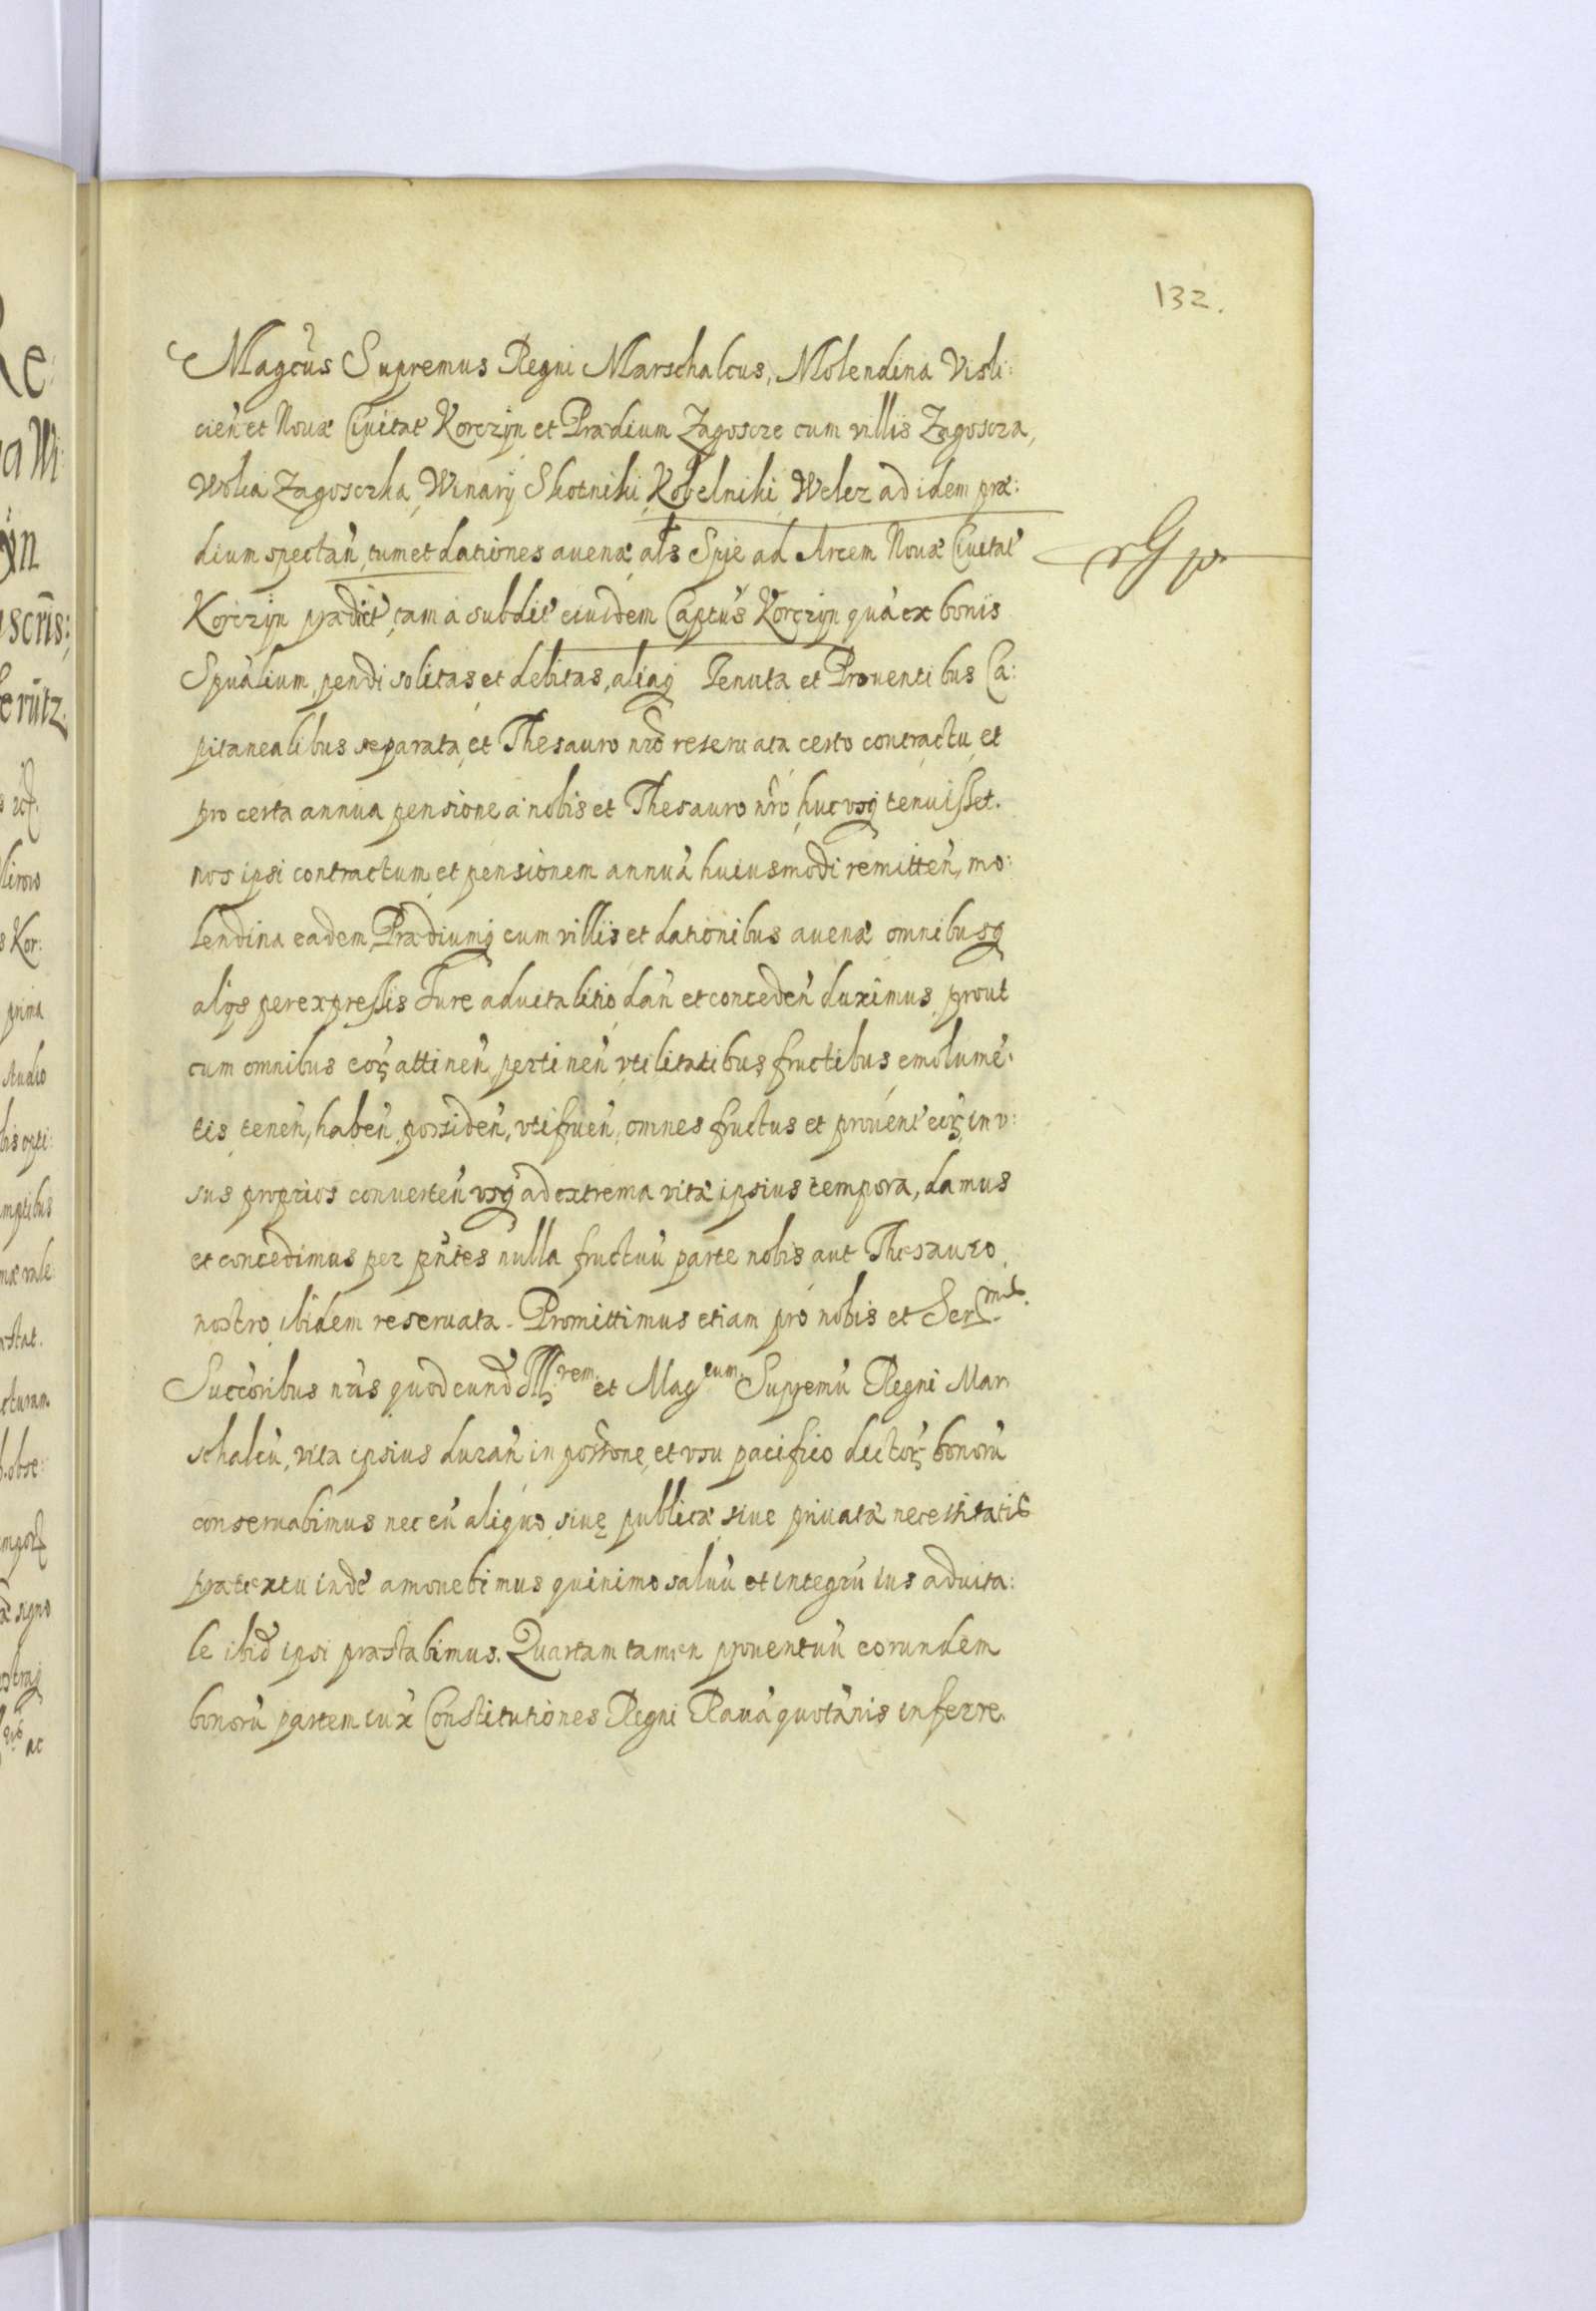 132.
Magcus Supremus Regni Marschalcus, Molendina Visli:
cien et Nouæ Ciuitat Korczyn et Prædium Zagoscze cum villis Zagoscza,
Wolia Zagosczka, Winary Skotniki Kobelniki Welez ad idem præ:
dium spectan, tum et dationes auenæ als Spie ad Arcem Nouæ Ciuitat
Korczyn prædict, tam a subdit eiusdem Captus Korczyn quá ex bonis
Spualium, pendi solitas et debitas, aliaq Tenuta et Prouentibus Ca:
pitanealibus separata, et Thesauro nro reseruata certo contractu, et
pro certa annua pensione a nobis et Thesauro nro, huc vsq tenuisset.
nos ipsi contractum et pensionem annuá huiusmodi remitten, mo:
lendina eadem, Prædiumq cum villis et dationibus auenæ omnibusq
alijs per expressis Jure aduitalitio dan et conceden duximus, prout
cum omnibus eor attinen, pertinen vtilitatibus fructibus emolumē:
tis, tenen, haben, possiden, vtifruen, omnes fructus et prouent eor, in v:
sus proprios conuerten vsq ad extrema vitæ ipsius tempora, damus
et concedimus per pntes nulla fructuū parte nobis aut Thesauro
nostro ibidem reseruata. Promittimus etiam pro nobis et Ser
Succoribus nris quod eund Ill rem et Mag cum Supremū Regni Mar
schalcū, vita ipsius duran in possone, et vsu pacifico dictor bonorū
conseruabimus nec eū aliquo siue publicæ siue priuatæ necessitatis
prætextu inde amouebimus quinimo saluū et integrū ius aduita:
le ibid ipsi præstabimus. Quartam tamen prouentuū eorundem
bonorū partem iux Constitutiones Regni Rauá quotānis inferre.